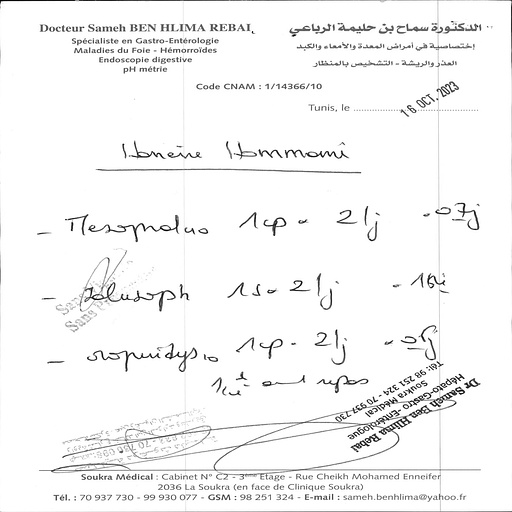 Docteur Sameh BEN HLIMA REBAI
Spécialiste en Gastro-Entérologie
Maladies du Foie - Hémorroïdes
Endoscopie digestive
pH métrie
الدكتورة سماح بن حليمة الرباعي
إختصاصية في أمراض المعدة والأمعاء والكبد
العذر والريشة - التشخيص بالمنظار
Code CNAM : 1/14366/10
Tunis, le 16 OCT. 2023
Hammami
- 1cp - 2/j - 07j
- 1s - 2/j
- 1cp - 2/j
Dr Sameh Ben Hlima Rebai
Hépato-Gastro-Entérologue
Soukra Médical
Tél: 98 251 324 - 70 937 730
Soukra Médical : Cabinet N° C2 - 3ème Etage - Rue Cheikh Mohamed Enneifer
2036 La Soukra (en face de Clinique Soukra)
Tél. : 70 937 730 - 99 930 077 - GSM : 98 251 324 - E-mail : sameh.benhlima@yahoo.fr